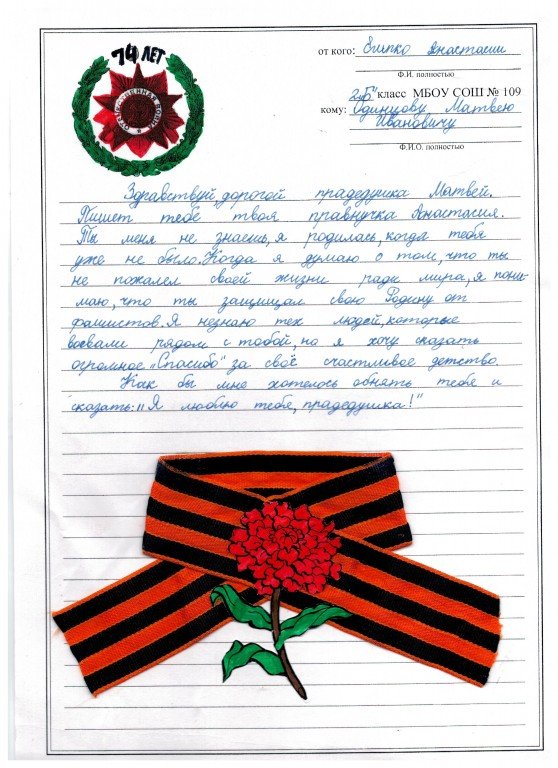 74 ЛЕТ
ОТЕЧЕСТВЕННАЯ ВОЙНА
от кого: Анастасии
Ф.И. полностью
2„Б" класс МБОУ СОШ № 109
кому: Одинцову Матвею
Ивановичу
Ф.И.О. полностью
Здравствуй, дорогой прадедушка Матвей.
Пишет тебе твоя правнучка Анастасия.
Ты меня не знаешь, я родилась, когда тебя
уже не было. Когда я думаю о том, что ты
не пожалел своей жизни ради мира, я пони-
маю, что ты защищал свою Родину от
фашистов. Я незнаю тех людей, которые
воевали рядом с тобой, но я хочу сказать
огромное „Спасибо" за своё счастливое детство.
Как бы мне хотелось обнять тебя и
сказать: „Я люблю тебя, прадедушка!"